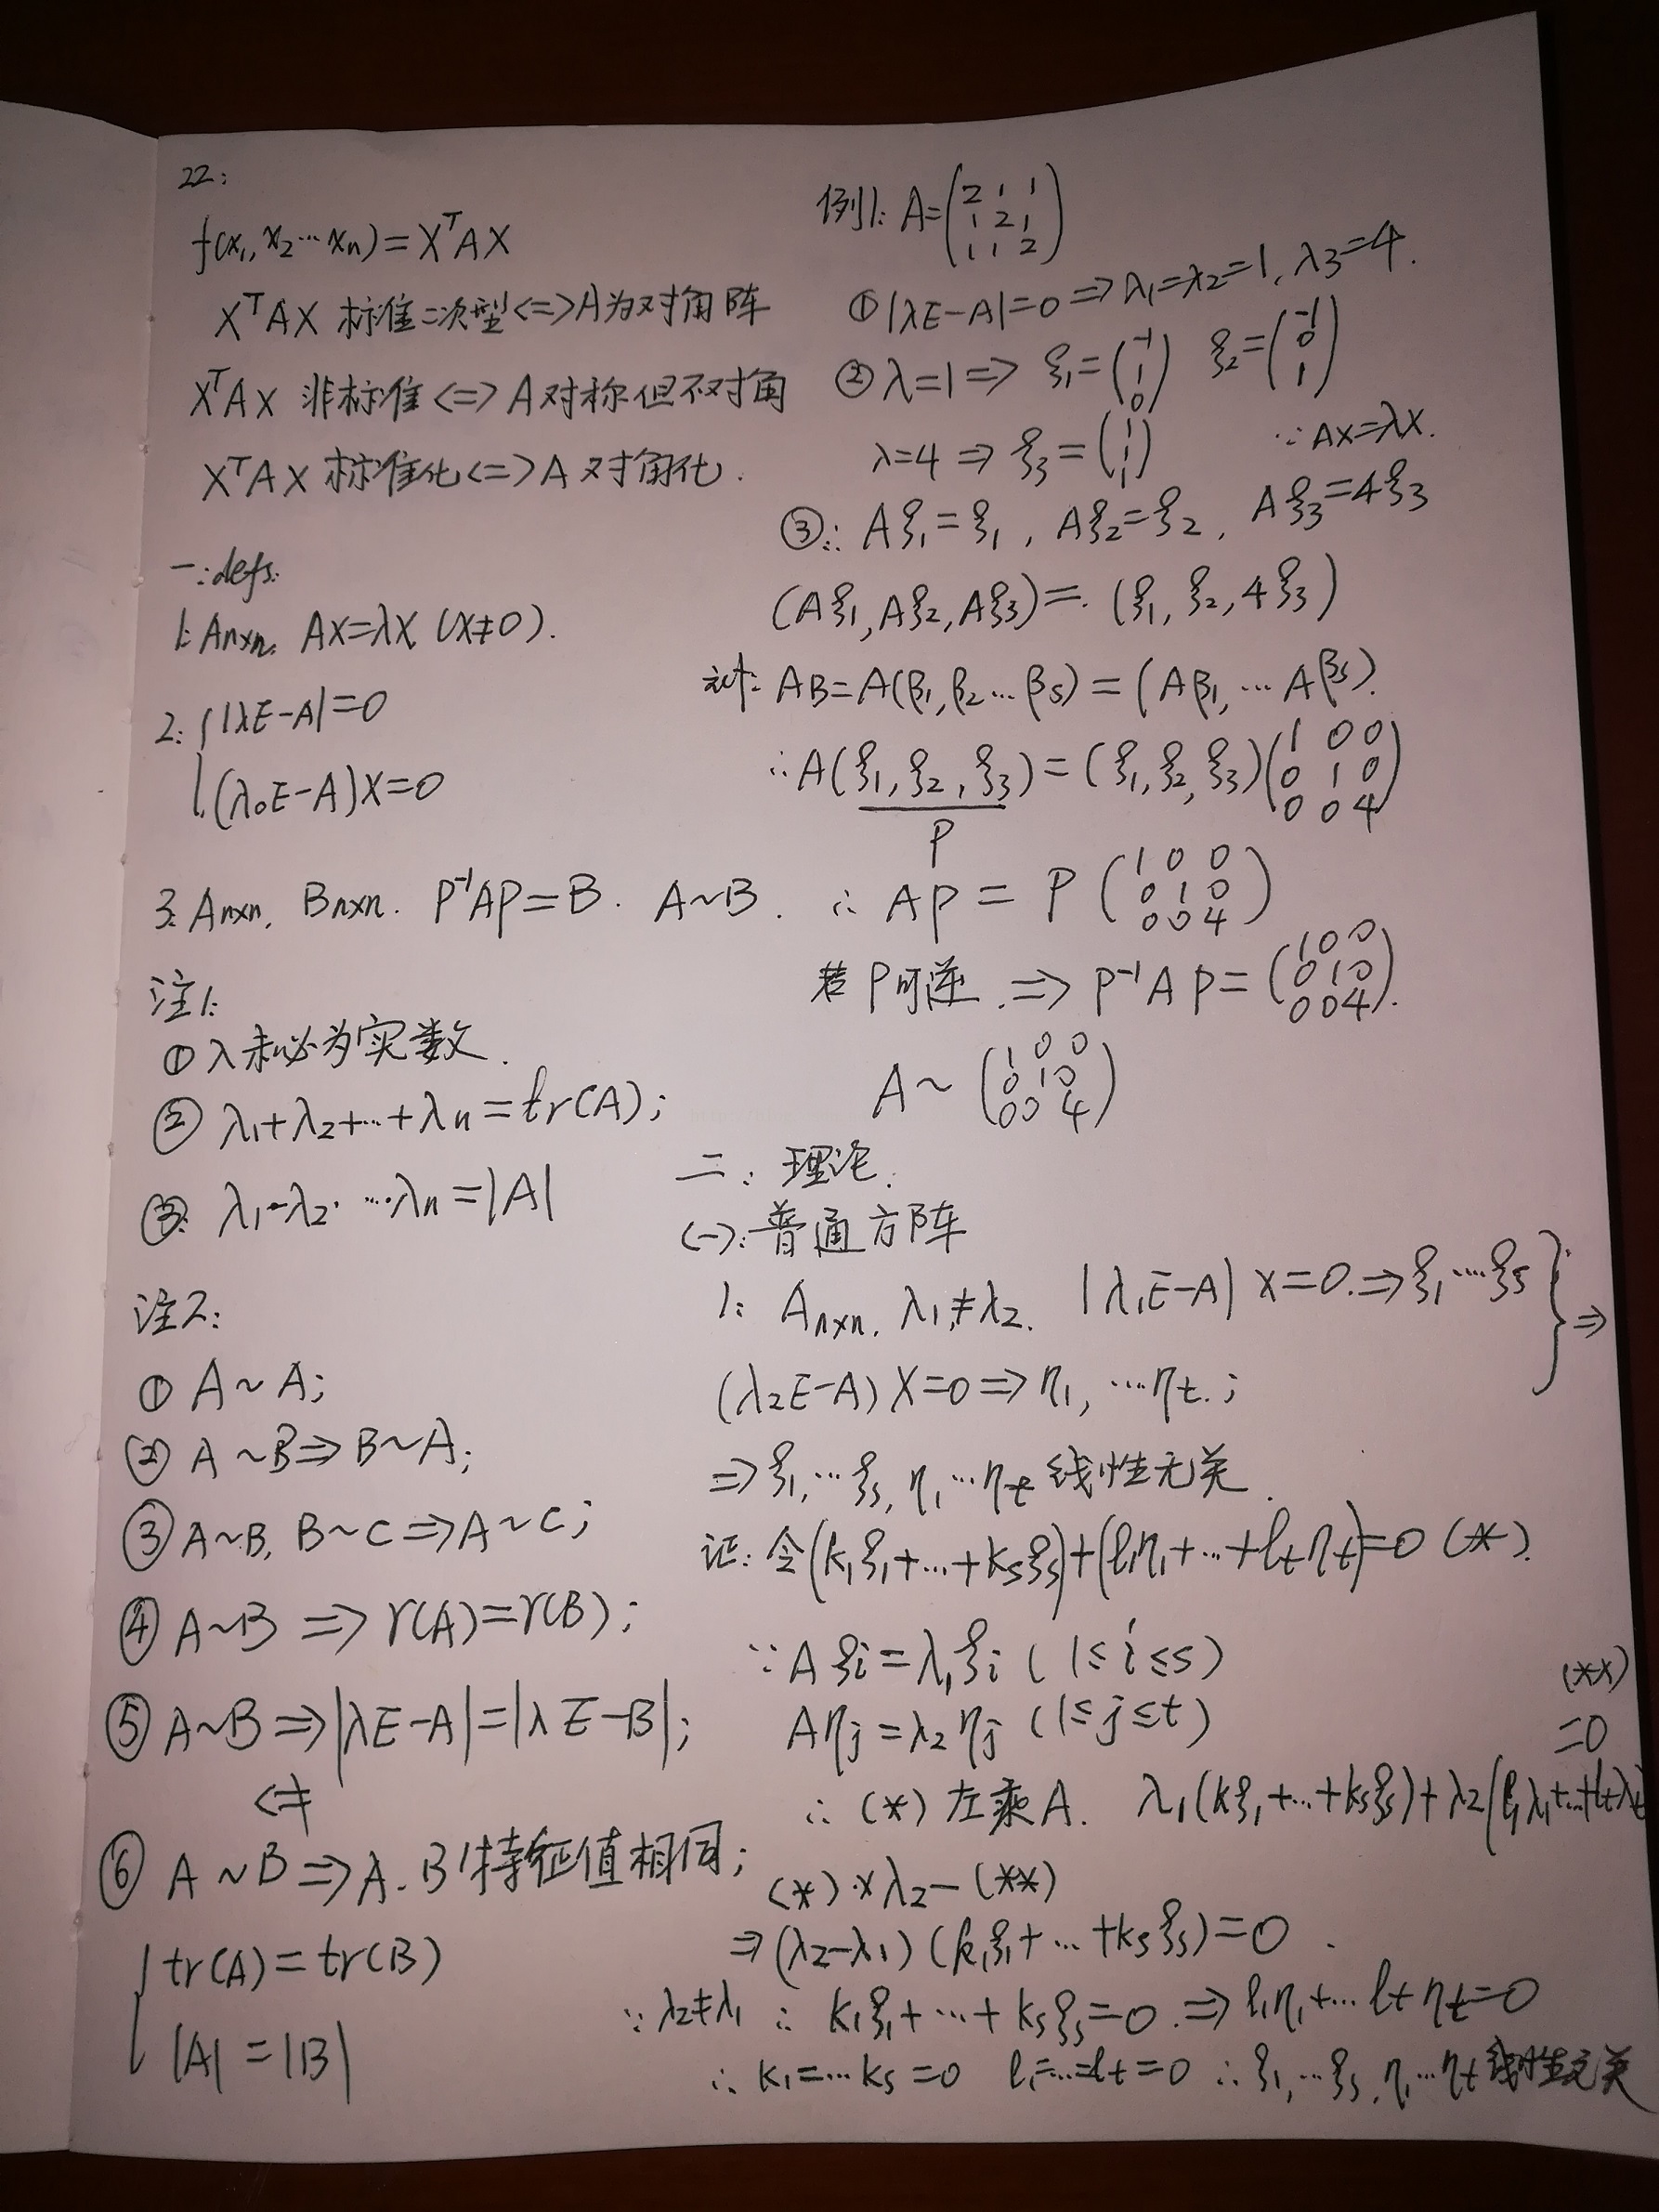 22:
f(x₁,x₂…xₙ)=XᵀAX
XᵀAX 标准二次型<=>A为对角阵
XᵀAX 非标准<=>A对称但不对角
XᵀAX 标准化<=>A对角化.
一:defs:
1: Aₙₓₙ. AX=λX (X≠0).
2: { |λE-A|=0
(λ₀E-A)X=0
3: Aₙₓₙ, Bₙₓₙ. P⁻¹AP=B. A~B.
注1:
① λ未必为实数.
② λ₁+λ₂+…+λₙ=tr(A);
③ λ₁·λ₂·…λₙ=|A|
注2:
① A~A;
② A~B⇒B~A;
③ A~B, B~C⇒A~C;
④ A~B ⇒ r(A)=r(B);
⑤ A~B⇒|λE-A|=|λE-B|;
<≠
⑥ A~B⇒A.B特征值相同;
{ tr(A)=tr(B)
|A|=|B|
例1: A=(2 1 1
1 2 1
1 1 2)
① |λE-A|=0⇒λ₁=λ₂=1, λ₃=4.
② λ=1⇒ ξ₁=(-1 1 0) ξ₂=(-1 0 1)
λ=4⇒ξ₃=(1 1 1) ∵AX=λX.
③∴ Aξ₁=ξ₁, Aξ₂=ξ₂, Aξ₃=4ξ₃
(Aξ₁,Aξ₂,Aξ₃)=(ξ₁,ξ₂,4ξ₃)
AB=A(β₁,β₂…βs)=(Aβ₁,…Aβs).
∴A(ξ₁,ξ₂,ξ₃)=(ξ₁,ξ₂,ξ₃)(1 0 0
0 1 0
0 0 4)
P
∴ AP = P(1 0 0
0 1 0
0 0 4)
若P可逆.⇒P⁻¹AP=(1 0 0
0 1 0
0 0 4).
A~(1 0 0
0 1 0
0 0 4)
二:理论.
(一):普通方阵
1: Aₙₓₙ. λ₁≠λ₂. |λ₁E-A|X=0.⇒ξ₁…ξs } ⇒
(λ₂E-A)X=0⇒η₁,…ηt.;
⇒ξ₁,…ξs,η₁…ηt线性无关.
证:令(k₁ξ₁+…+ksξs)+(l₁η₁+…+ltηt)=0 (*).
∵Aξi=λ₁ξi (1≤i≤s)
Aηj=λ₂ηj (1≤j≤t)
∴(*)左乘A. λ₁(kξ₁+…+ksξs)+λ₂(l₁λ₁+…+ltλt) =0 (**)
(*)×λ₂-(**)
⇒(λ₂-λ₁)(k₁ξ₁+…+ksξs)=0.
∵λ₂≠λ₁ ∴ k₁ξ₁+…+ksξs=0.⇒l₁η₁+…ltηt=0
∴k₁=…ks=0 l₁=…=lt=0 ∴ξ₁,…ξs,η₁…ηt线性无关